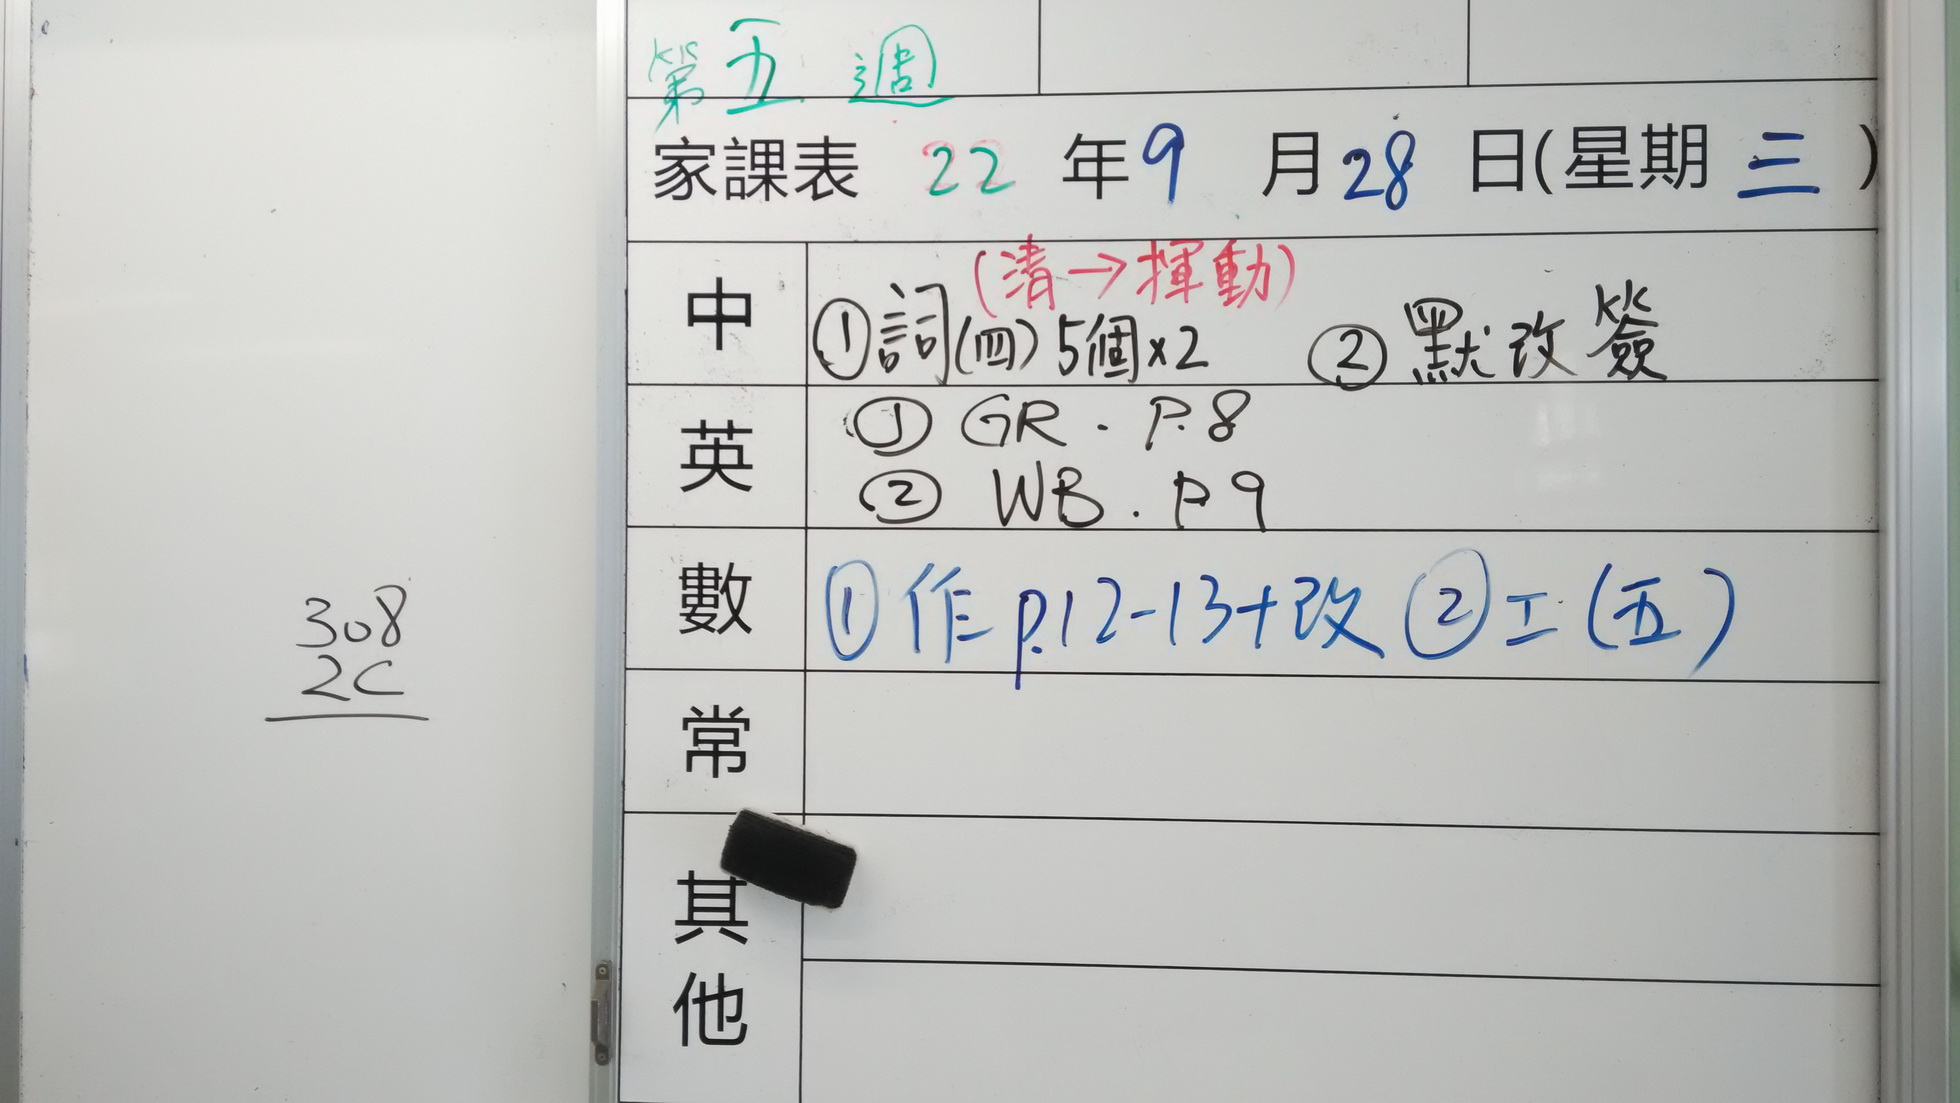 第五週
家課表 22 年 9 月 28 日(星期 三 )
中
(清→揮動)
①詞(四)5個×2 ②默改簽
英
① GR . P.8
② WB . P9
數 ①作 p.12-13+改 ②工(五)
常
其他
308
2C